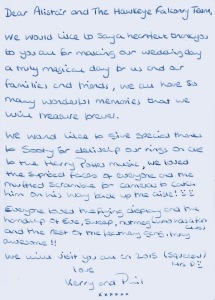 Dear Alistair and The Hawkeye Falconry Team,
We would like to say a heartfelt thank you
to you all for making our wedding day
a truly magical day for us and our
families and friends, we all have so
many wonderful memories that we
will treasure forever.
We would like to give special thanks
to Sooty for delivering our rings on cue
to the Harry Potter music, we loved
the suprised faces of everyone and the
muffled scramble for cameras to catch
him on his way back up the aisle!
Everyone loved the flying display and the
handling of Eve, Sweep, nutmeg
and the rest of the feathery gang, truly
awesome!!
We will visit you all in 2015
love
Kerry and Phil
xxxxxx